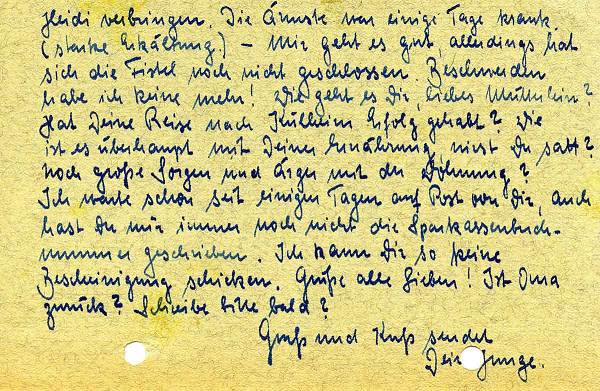 Heidi verbringen. Die Ärmste war einige Tage krank.
(starke Erkältung.) – Mir geht es gut, allerdings hat
sich die Fistel noch nicht geschlossen. Beschwerden
habe ich keine mehr! Wie geht es Dir, liebes Muttilein?
Hat Deine Reise nach Külsheim Erfolg gehabt? Wie
ist es überhaupt mit Deiner Ernährung, wirst Du satt?
Noch große Sorgen und Ärger mit der Wohnung?
Ich warte schon seit einigen Tagen auf Post von Dir, auch
hast Du mir immer noch nicht die Sparkassenbuch-
nummer geschrieben. Ich kann Dir so keine
Bescheinigung schicken. Grüße alle Lieben! Ist Oma
zurück? Schreibe bitte bald?
Gruß und Kuß sendet
Dein Junge.